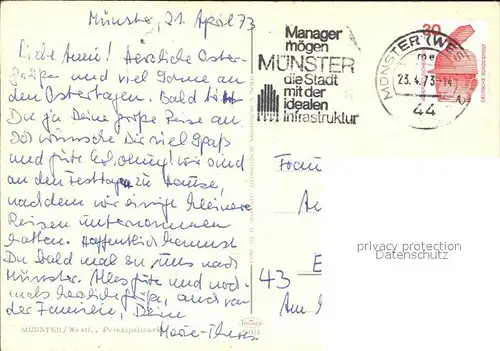 Münster, 21. April 73
Liebe Anni! Herzliche Oster-
grüße und viel Sonne an
den Ostertagen. Bald
Du ja Deine große Reise an
Ich wünsche Dir viel Spaß
und gute Erholung! Wir sind
an den Festtagen zu Hause,
nachdem wir einige kleinere
Reisen unternommen
hatten. Hoffentlich kommst
Du bald mal zu uns nach
Münster. Alles Gute und noch-
mals herzliche Grüße, auch von
der Familie, Deine
Marie-Theres
MÜNSTER/Westf., Prinzipalmarkt
Manager
mögen
MÜNSTER
die Stadt
mit der
idealen
Infrastruktur
MÜNSTER (WES
23.4.73-14
44
30
DEUTSCHE BUNDESPOST
Frau
An
persönlicher
Datenschutz.
E
43
Am